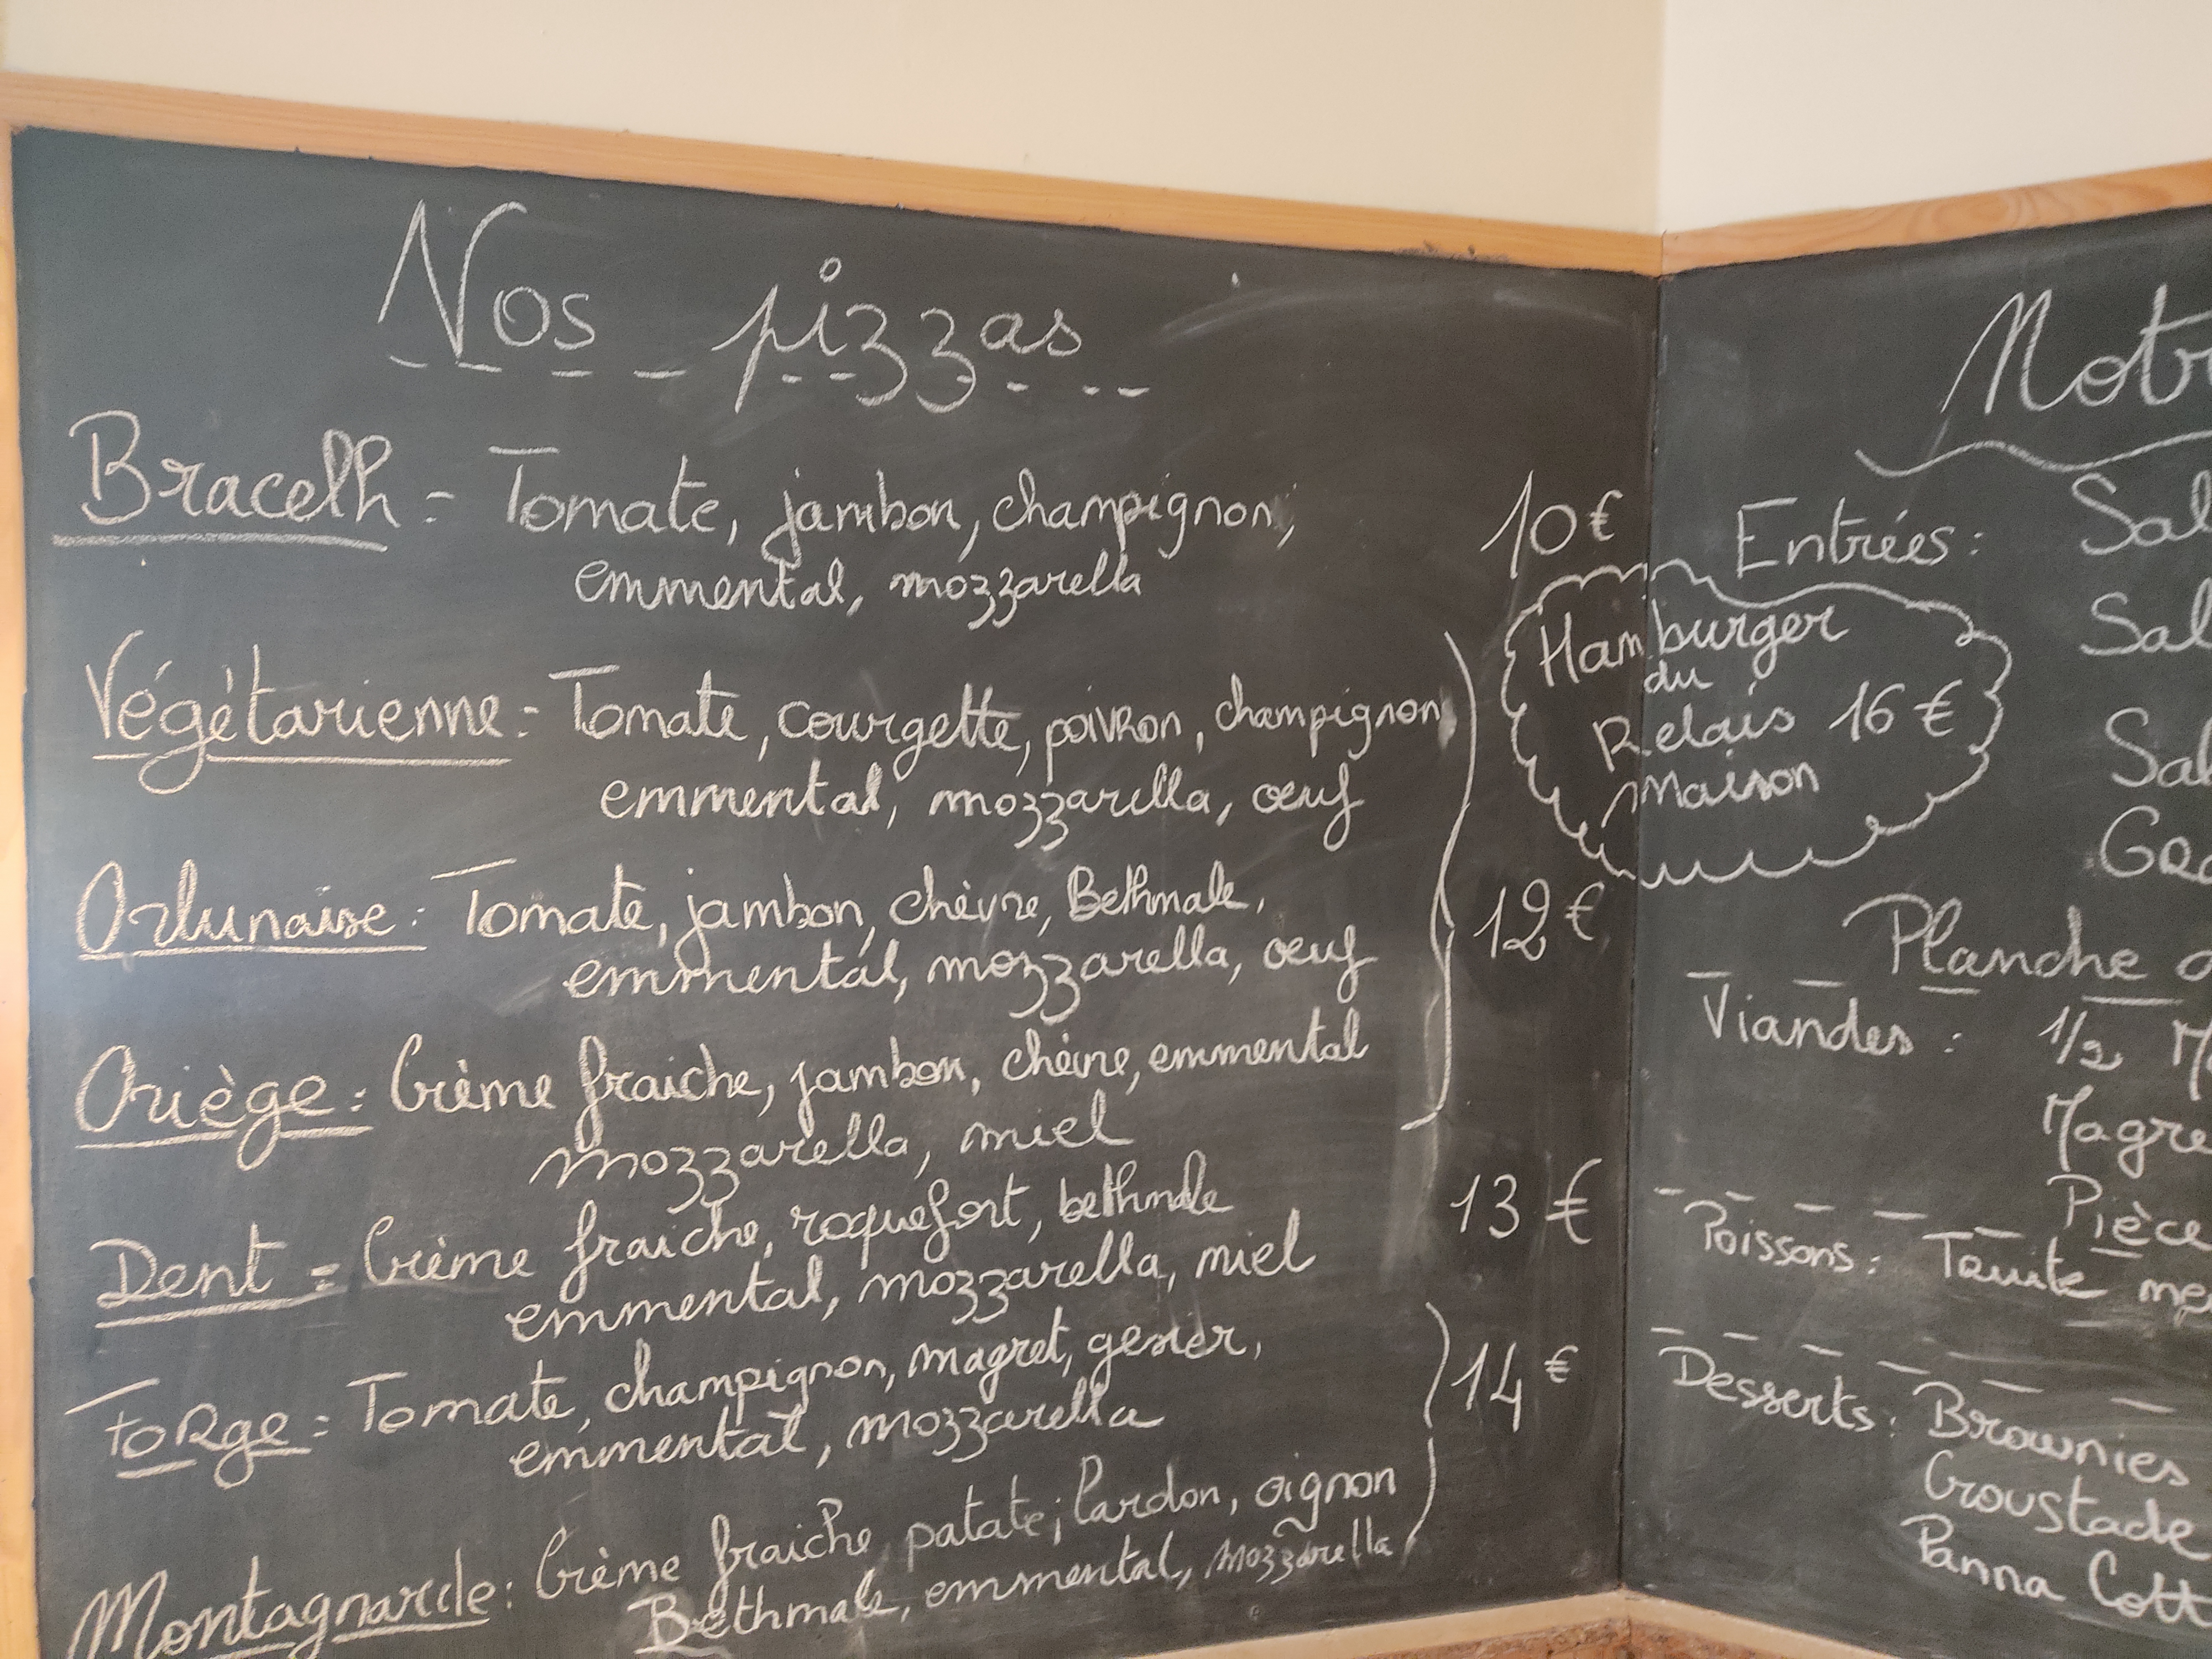 Nos pizzas
Bracelh = Tomate, jambon, champignon,
emmental, mozzarella
10 €
Végétarienne = Tomate, courgette, poivron, champignon
emmental, mozzarella, œuf
Orlunaise : Tomate, jambon, chèvre, Bethmale,
emmental, mozzarella, œuf
12 €
Oriège = Crème fraiche, jambon, chèvre, emmental
mozzarella, miel
Dent = Crème fraiche, roquefort, bethmale
emmental, mozzarella, miel
13 €
Forge = Tomate, champignon, magret, gesier,
emmental, mozzarella
14 €
Montagnarde : Crème fraiche patate, lardon, oignon
Bethmale, emmental, mozzarella
Hamburger
du
Relais 16 €
Maison
Notr
Entrées : Sal
Sal
Sal
Planche
Viandes : 1/2 M
Magre
Pièce
Poissons : Truite me
Desserts : Brownies
Croustade
Panna Cott